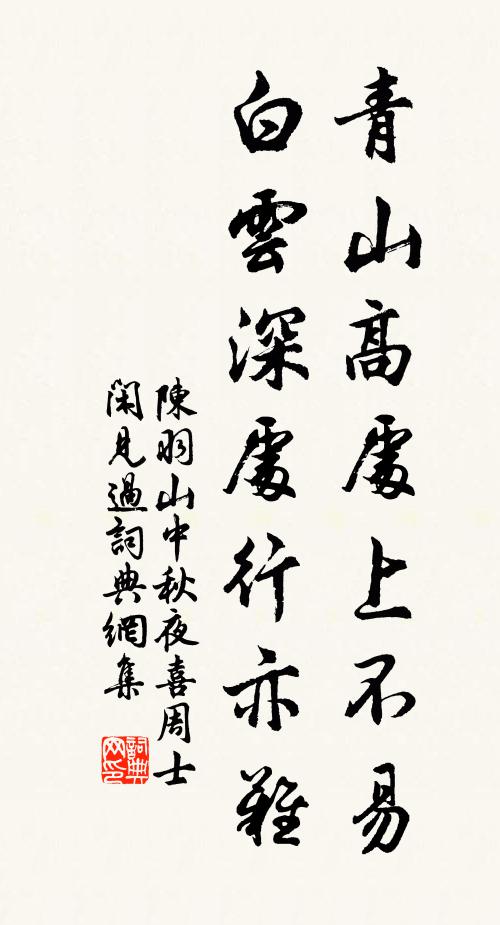 青山高處上不易
白雲深處行亦難
陳羽山中秋夜喜周士
閑見過詞典網集
詞典
网印